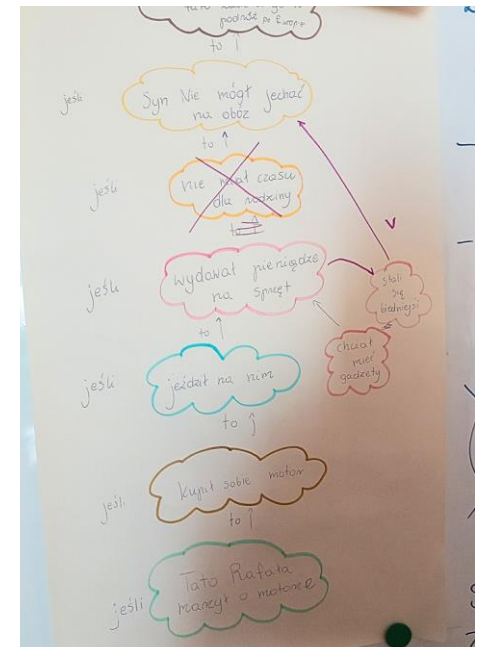 podróż po Europie
to
jeśli
Syn Nie mógł jechać
na obóz
to
jeśli
nie miał czasu
dla rodziny
to
jeśli
wydawał pieniądze
na sprzęt
stali
się
biedniejsi
to
chciał
mieć
gadżety
jeśli
jeździł na nim
to
jeśli
Kupił sobie motor
to
jeśli
Tato Rafała
marzył o motorze